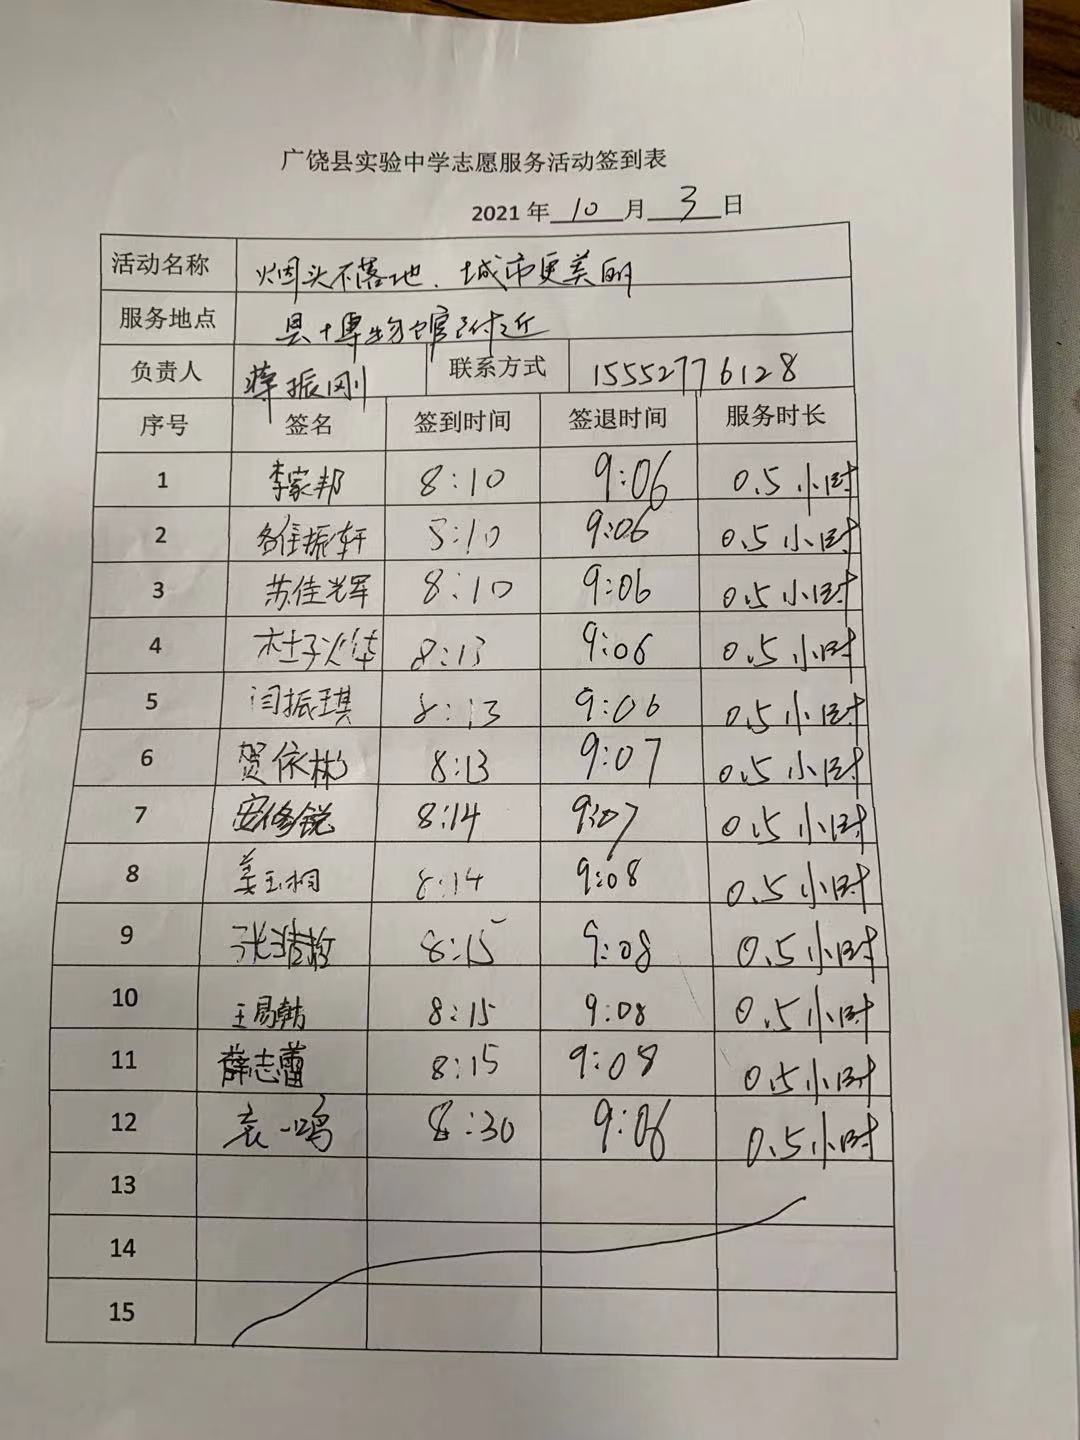 广饶县实验中学志愿服务活动签到表
2021 年 10 月 3 日
活动名称 烟头不落地、城市更美丽
服务地点 县博物馆附近
负责人 蒋振刚 联系方式 15552776128
序号 签名 签到时间 签退时间 服务时长
1 李家邦 8:10 9:06 0.5小时
2 振轩 8:10 9:06 0.5小时
3 苏佳辉 8:10 9:06 0.5小时
4 杜子烨 8:13 9:06 0.5小时
5 闫振琪 8:13 9:06 0.5小时
6 贺依彬 8:13 9:07 0.5小时
7 安修锐 8:14 9:07 0.5小时
8 姜玉桐 8:14 9:08 0.5小时
9 张 8:15 9:08 0.5小时
10 王易韩 8:15 9:08 0.5小时
11 薛志蕾 8:15 9:08 0.5小时
12 袁一鸣 8:30 9:06 0.5小时
13
14
15